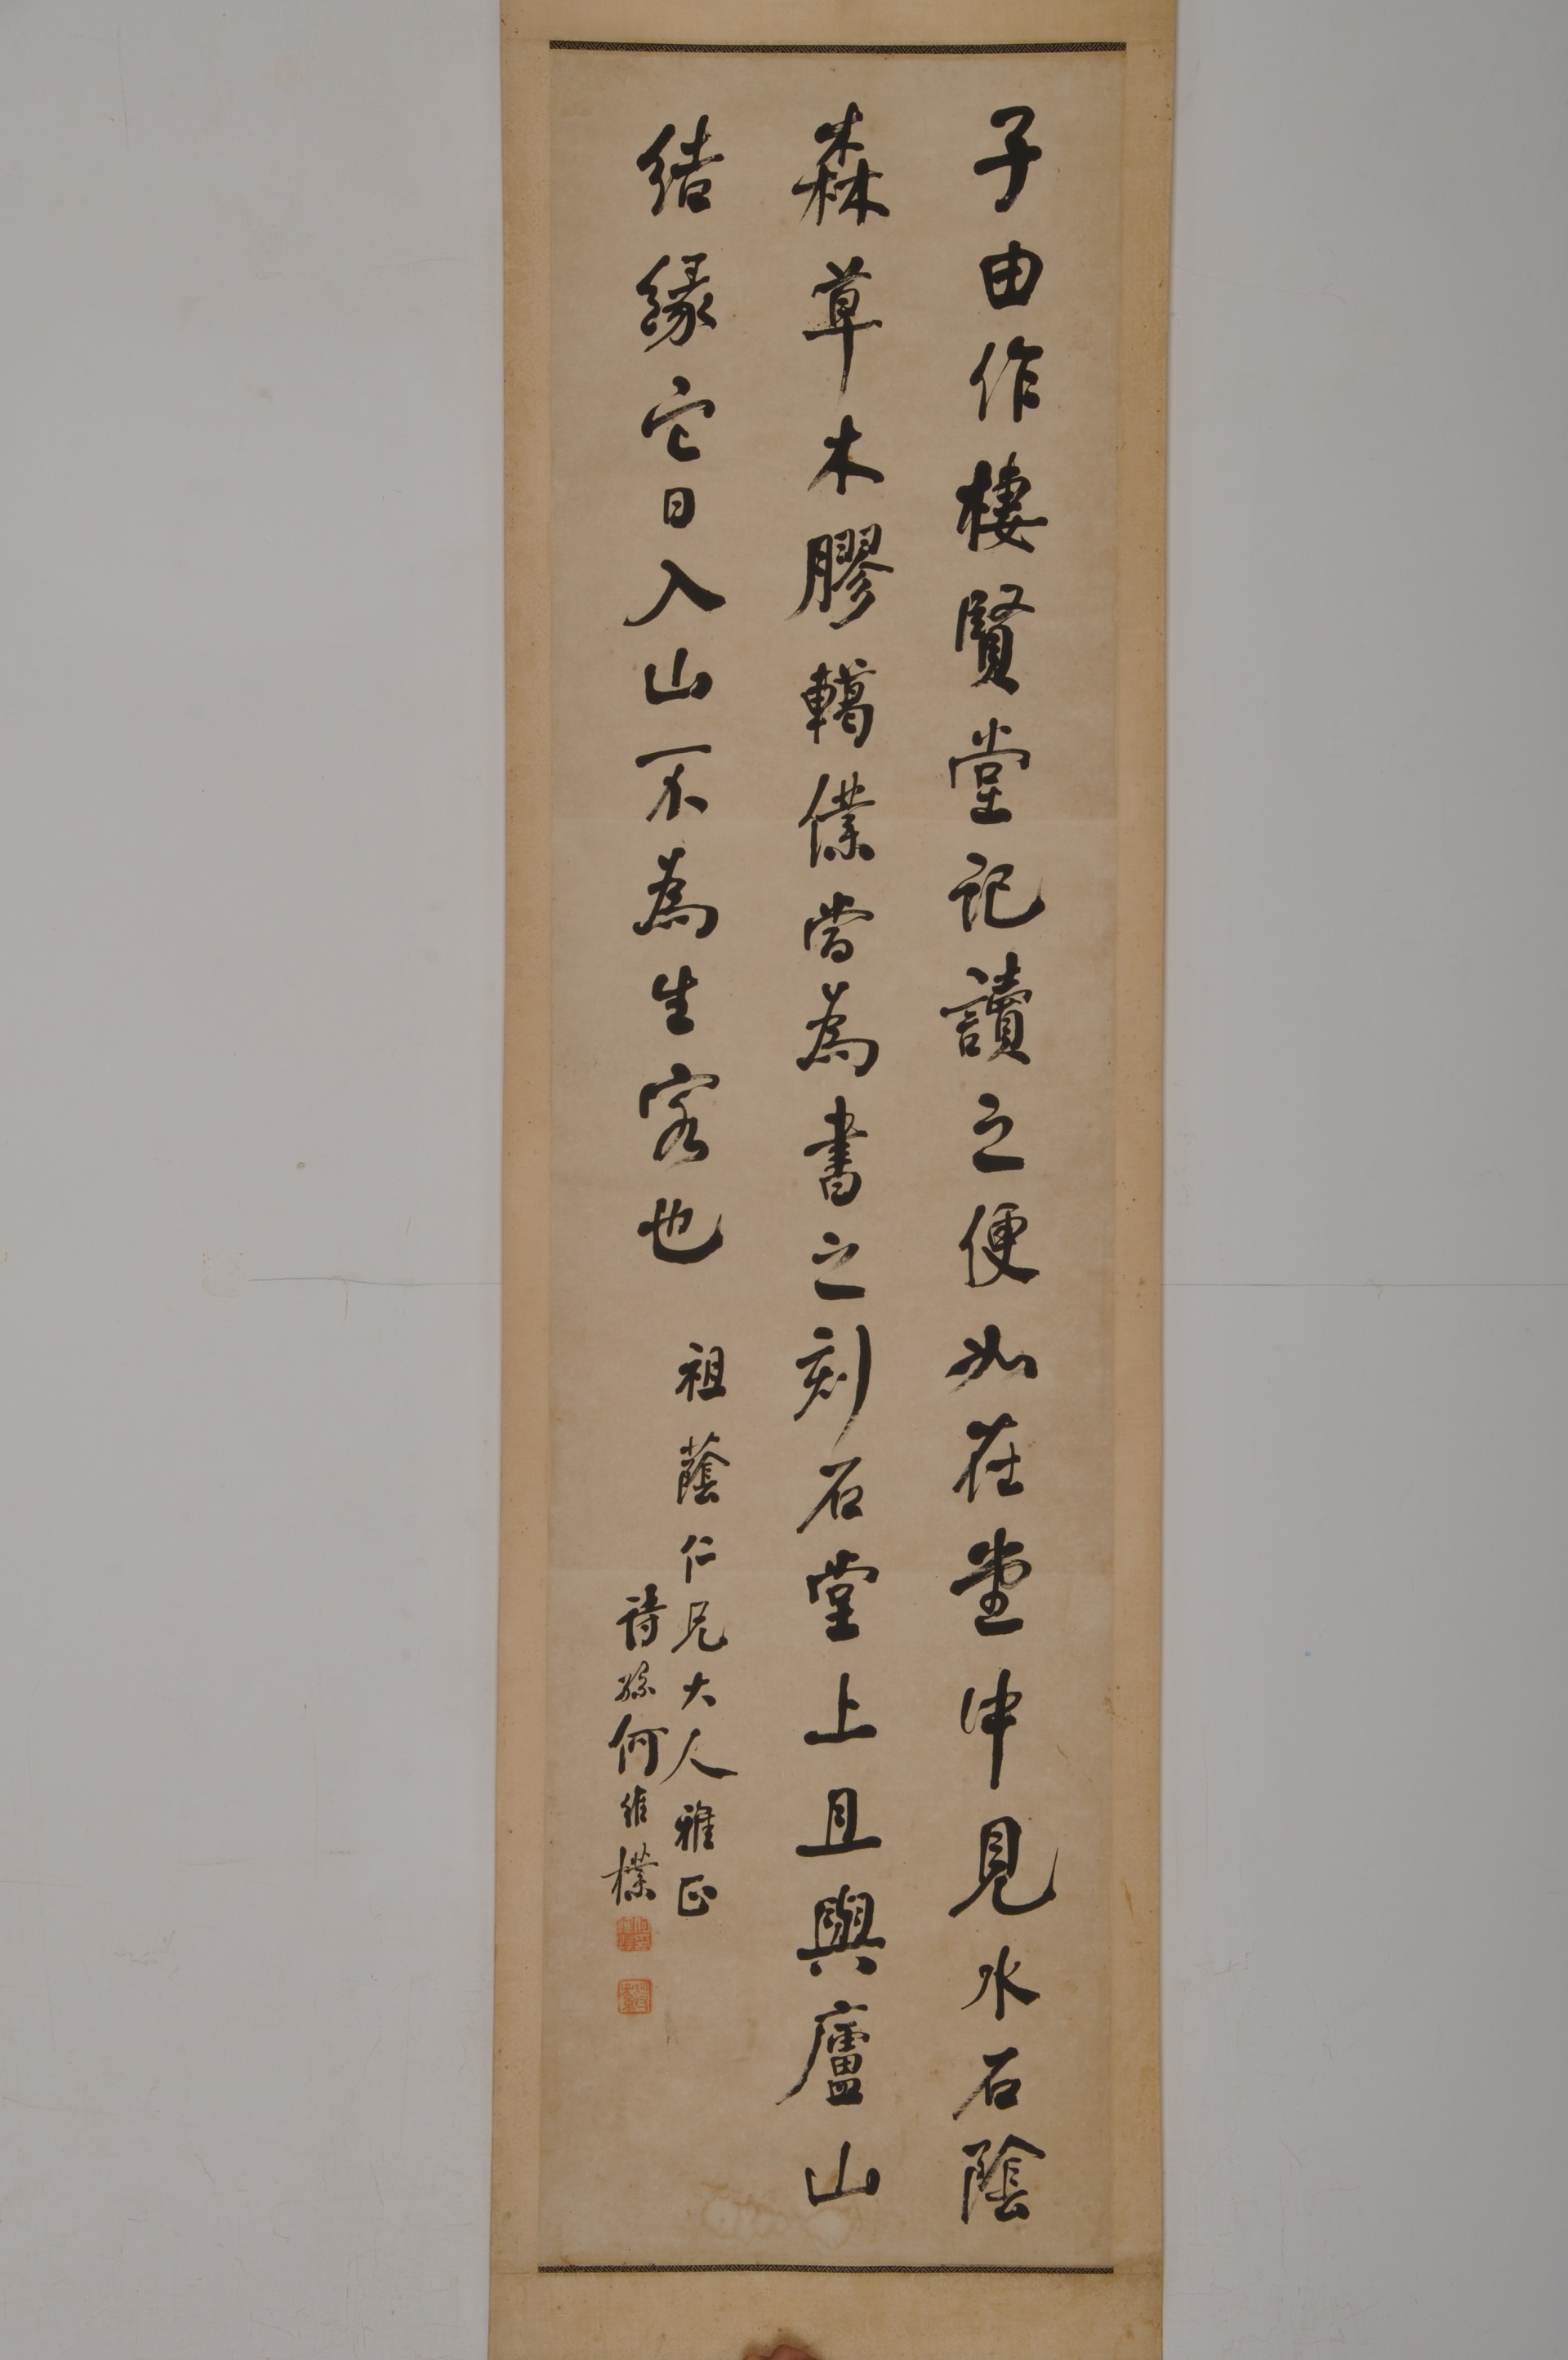 子由作棲賢堂記讀之便如在堂中見水石陰
森草木膠轕僕當為書之刻石堂上且與廬山
结緣它日入山不為生客也
祖蔭仁兄大人雅正
詩孫何維樸